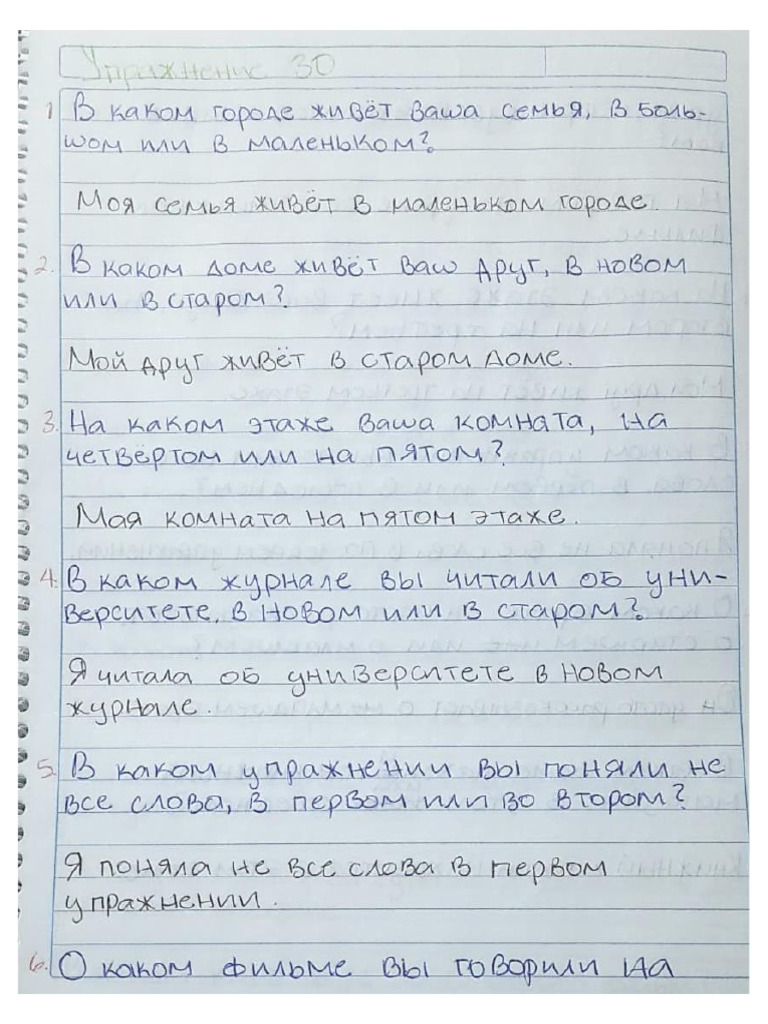 Упражнение 30
1 В каком городе живёт ваша семья, в боль-
шом или в маленьком?
Моя семья живёт в маленьком городе.
2. В каком доме живёт ваш друг, в новом
или в старом?
Мой друг живёт в старом доме.
3. На каком этаже ваша комната, на
четвёртом или на пятом?
Мая комната на пятом этаже.
4. В каком журнале вы читали об уни-
верситете, в новом или в старом?
Я читала об университете в новом
журнале.
5. В каком упражнении вы поняли не
все слова, в первом или во втором?
Я поняла не все слова в первом
упражнении.
6. О каком фильме вы говорили на